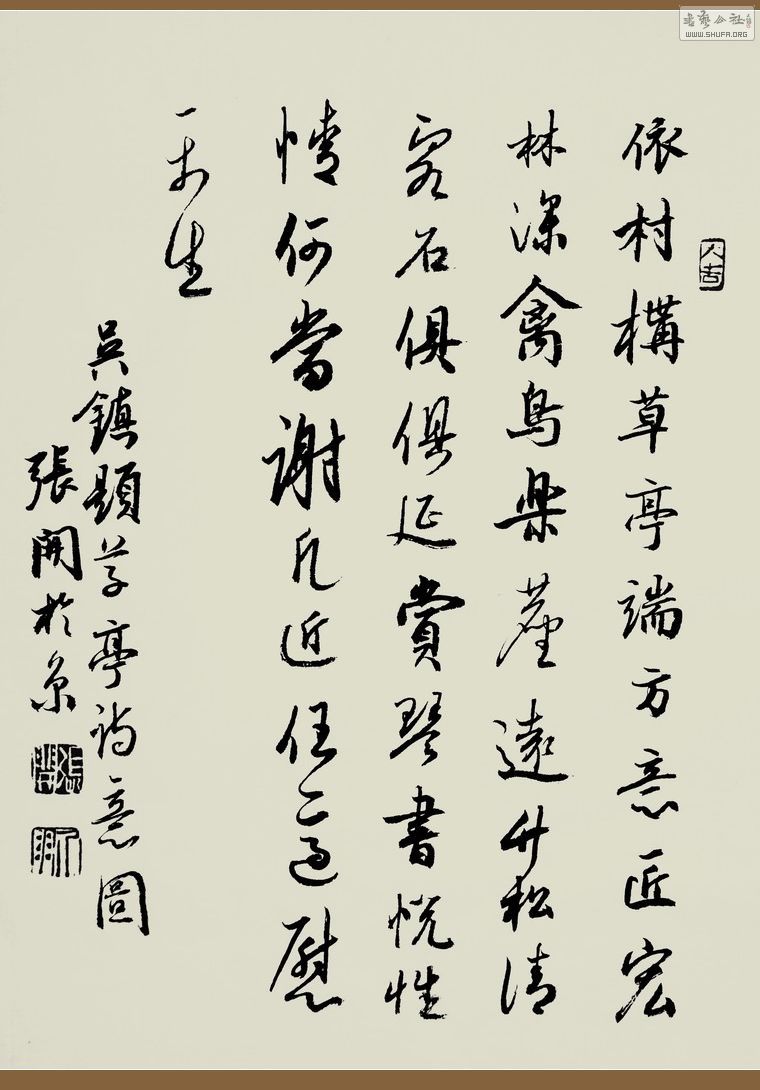 書藝公社
WWW.SHUFA.ORG
依村構草亭端方意匠宏
林深禽鳥樂塵遠竹松清
泉石俱俱延賞琴書悅性
情何當謝凡近任適慰
平生
吳鎮題草亭詩意圖
張開於京
張開